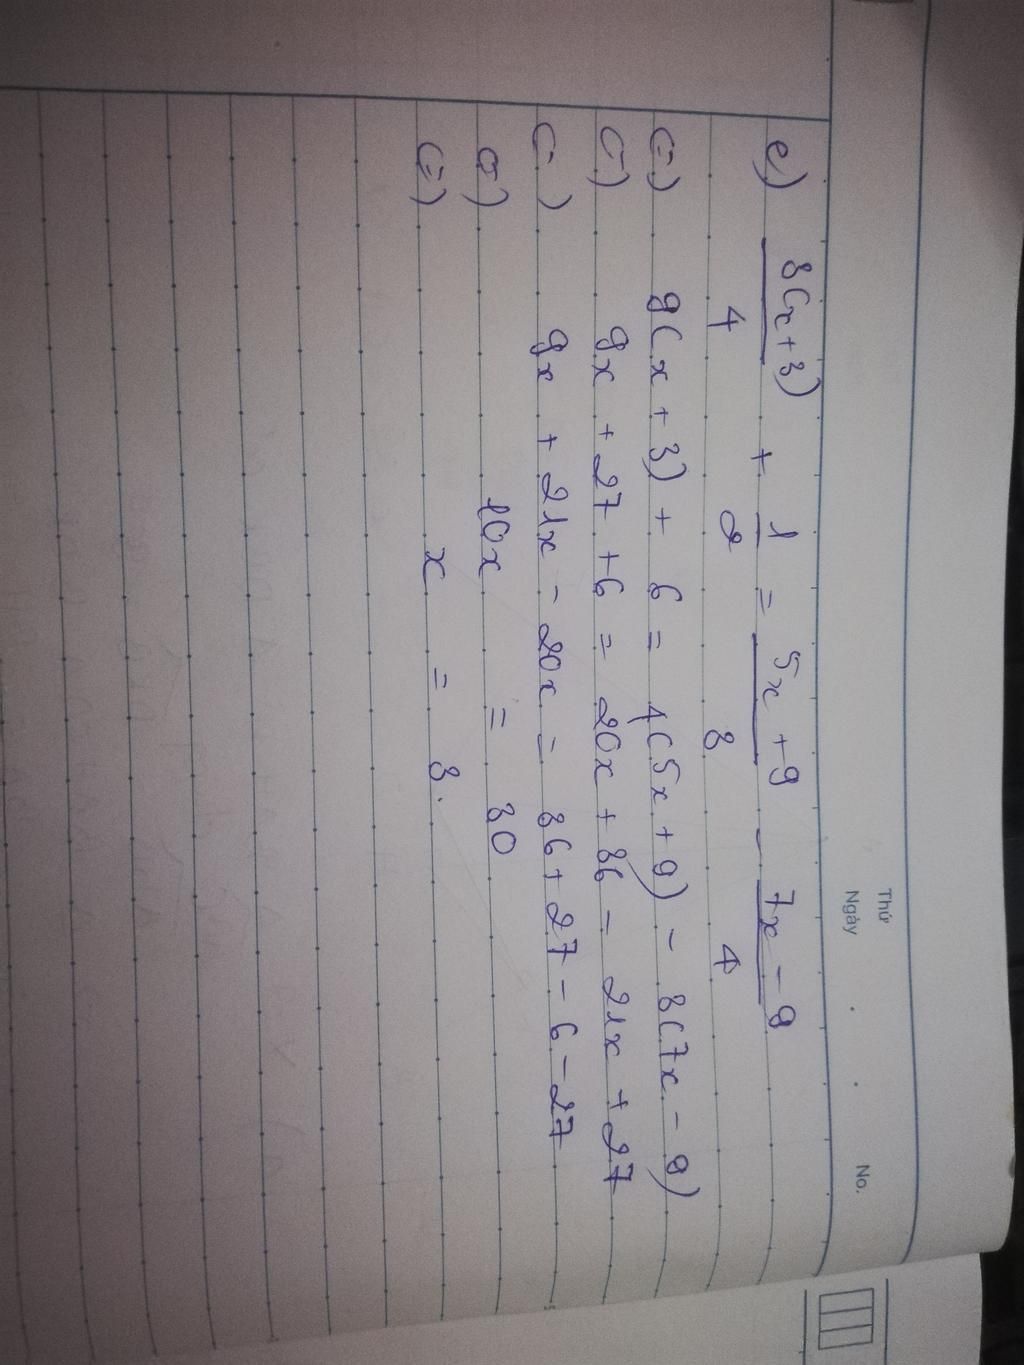 Thứ
Ngày . . No.
e) 3(x+3)/4 + 1/2 = 5x+9/3 - 7x-9/4
(=) 9(x+3) + 6 = 4(5x+9) - 3(7x-9)
(=) 9x + 27 + 6 = 20x + 36 - 21x + 27
(=) 9x + 21x - 20x = 36 + 27 - 6 - 27
(=) 10x = 30
(=) x = 3.